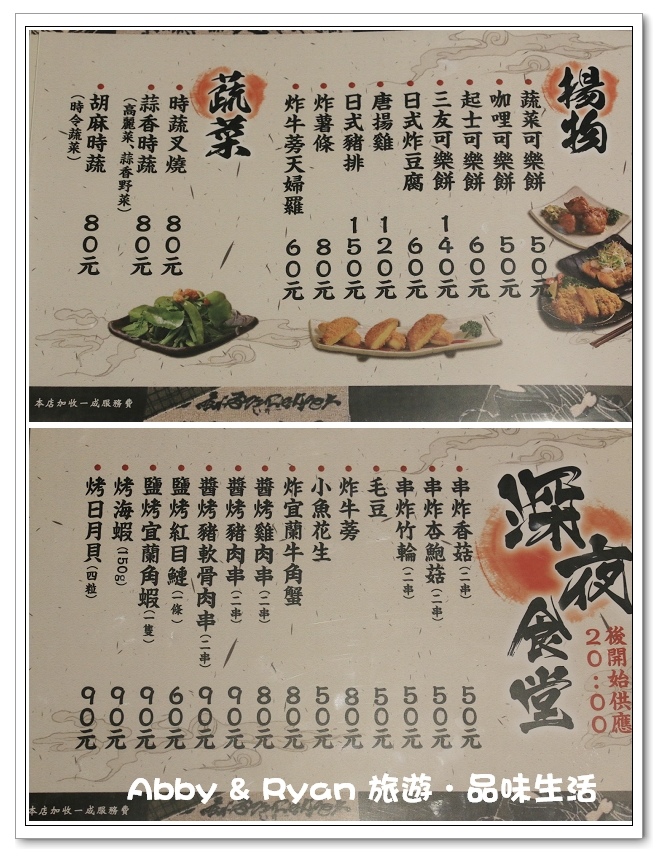 揚物
蔬菜可樂餅 50元
咖哩可樂餅 50元
起士可樂餅 60元
三友可樂餅 140元
日式炸豆腐 60元
唐揚雞 120元
日式豬排 150元
炸薯條 80元
炸牛蒡天婦羅 60元
蔬菜
時蔬叉燒 80元
蒜香時蔬 80元
(高麗菜、蒜香野菜)
胡麻時蔬 80元
(時令蔬菜)
本店加收一成服務費
深夜食堂
20:00
後開始供應
串炸香菇(二串) 50元
串炸杏鮑菇(二串) 50元
串炸竹輪(二串) 50元
毛豆 50元
炸牛蒡 80元
小魚花生 50元
炸宜蘭牛角蟹 80元
醬烤雞肉串(二串) 80元
醬烤豬肉串(二串) 90元
醬烤豬軟骨肉串(二串) 90元
鹽烤紅目鰱(一條) 60元
鹽烤宜蘭角蝦(一隻) 90元
烤海蝦(150g) 90元
烤日月貝(四粒) 90元
本店加收一成服務費
Abby & Ryan 旅遊·品味生活